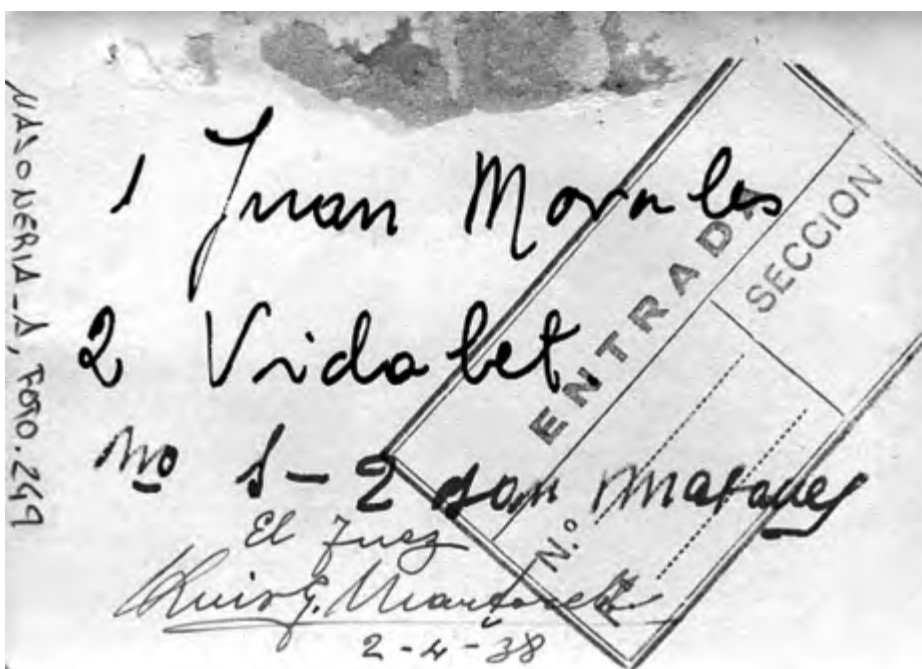 MASONERIA-A, FOTO.299
1 Juan Morales
2 Vidalet.
nº 1-2 son
El Juez
Luis G.
2-4-38
ENTRADA
SECCION
N.º